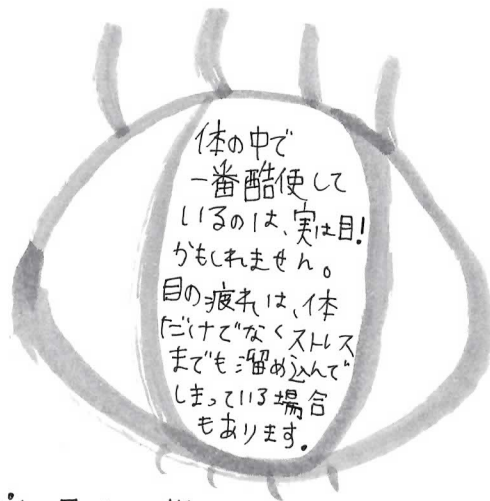 体の中で
一番酷使して
いるのは、実は目!
かもしれません。
目の疲れは、体
だけでなくストレス
までも溜め込んで
しまっている場合
もあります。